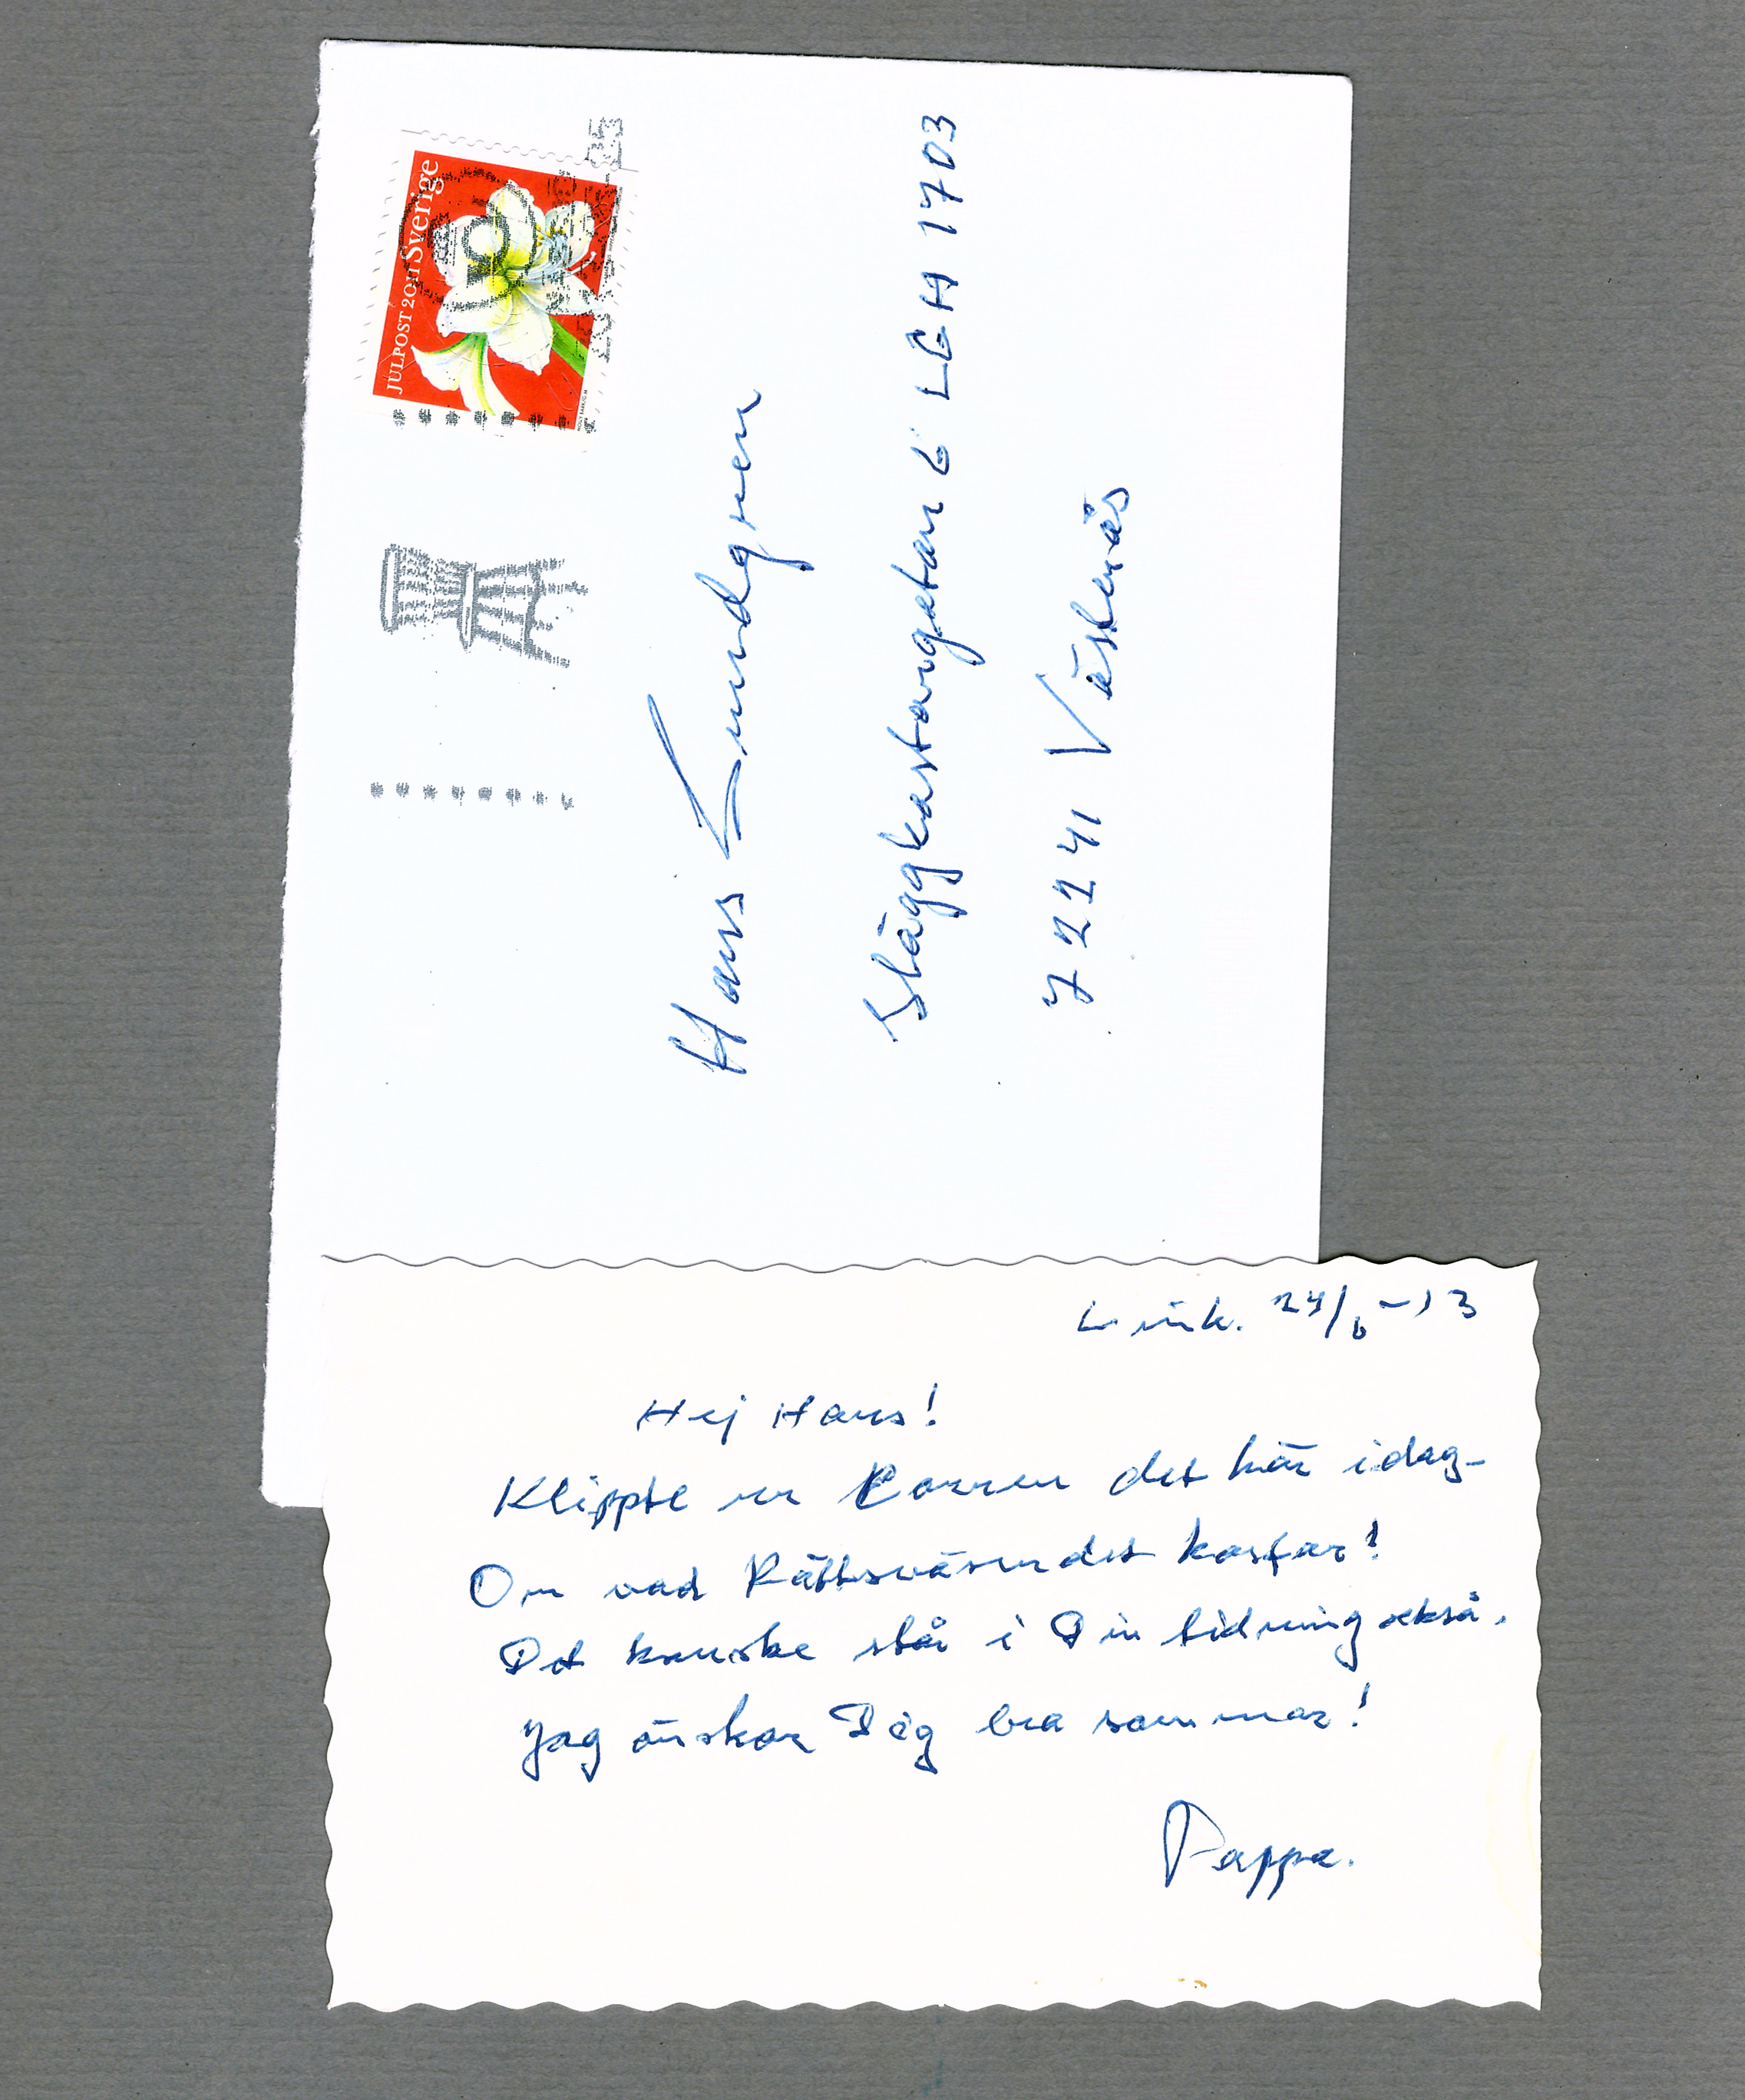 JULPOST 2011 Sverige
Hans Lundgren
Släggkastargatan 6 LGH 1703
72241 Västerås
Link. 24/6-13
Hej Hans!
Klippte ur Corren det här idag-
Om vad Rättsväsendet kostar!
Det kanske står i Din tidning också.
Jag önskar Dig bra sommar!
Pappa.